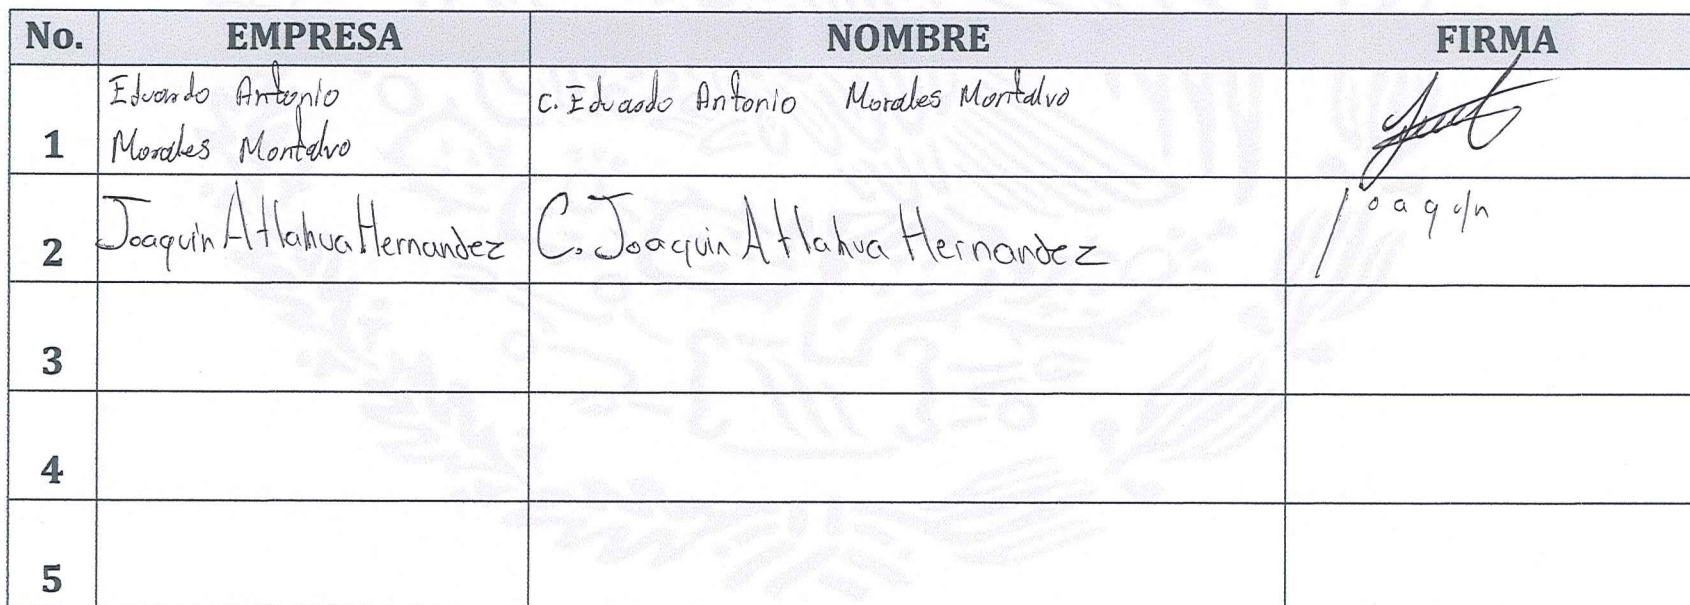 No. EMPRESA NOMBRE FIRMA
Eduardo Antonio C. Eduardo Antonio Morales Montalvo
1 Morales Montalvo
2 Joaquin Atlahua Hernandez C. Joaquin Atlahua Hernandez Joaqin
3
4
5